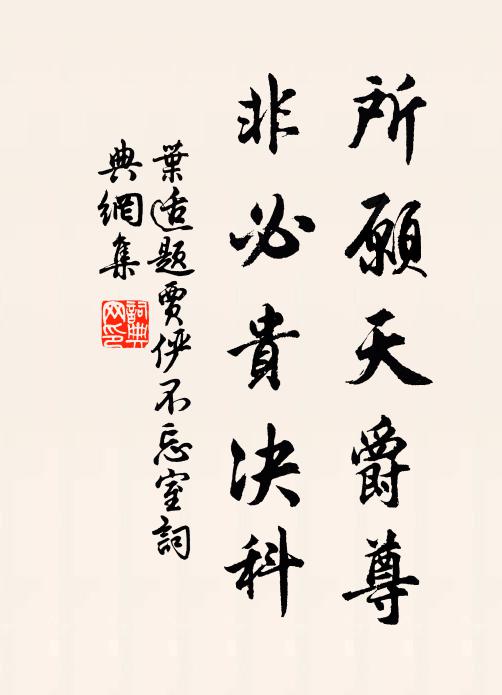 所願天爵尊
非必貴決科
葉適題賈俨不忘室詞
典網集
詞典
网印